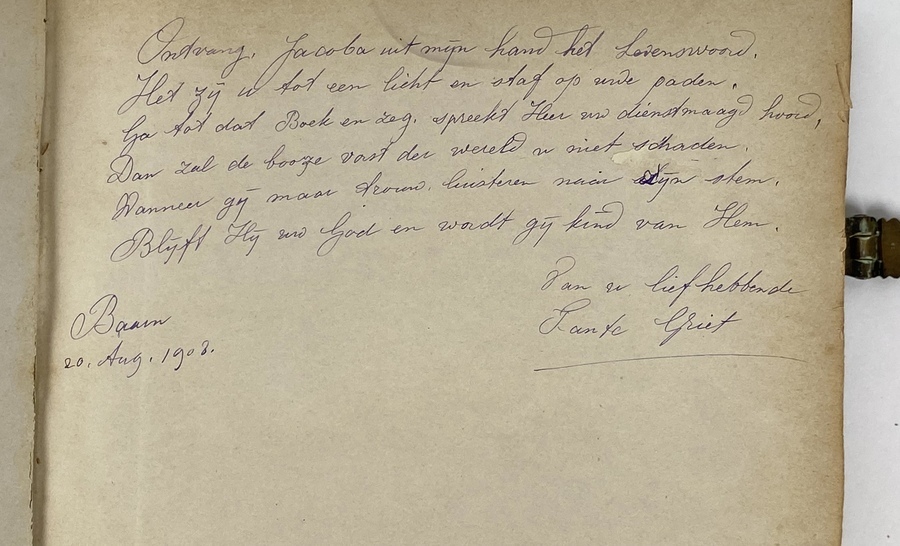 Ontvang, Jacoba uit mijn hand het Levenswoord.
Het zij u tot een licht en staf op uwe paden.
Ga tot dat Boek en zeg, spreekt Heer uw dienstmaagd hoord,
Dan zal de booze vorst der wereld u niet schaden.
Wanneer gij maar trouw, luisteren naar Zijn stem.
Blijft Hij uw God en wordt gij kind van Hem.
Van u liefhebbende
Tante Griet
Baarn
20. Aug. 1908.